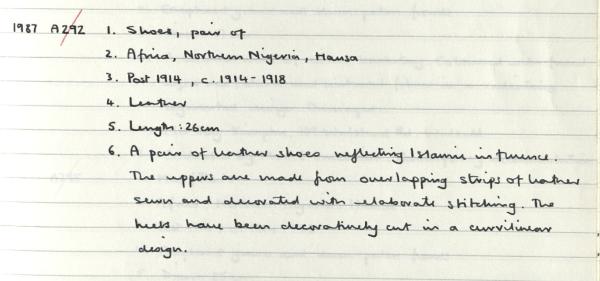 1987 A292 1. Shoes, pair of
2. Africa, Northern Nigeria, Hausa
3. Post 1914, c. 1914-1918
4. Leather
5. Length: 26cm
6. A pair of leather shoes reflecting Islamic influence.
The uppers are made from overlapping strips of leather
sewn and decorated with elaborate stitching. The
heels have been decoratively cut in a curvilinear
design.